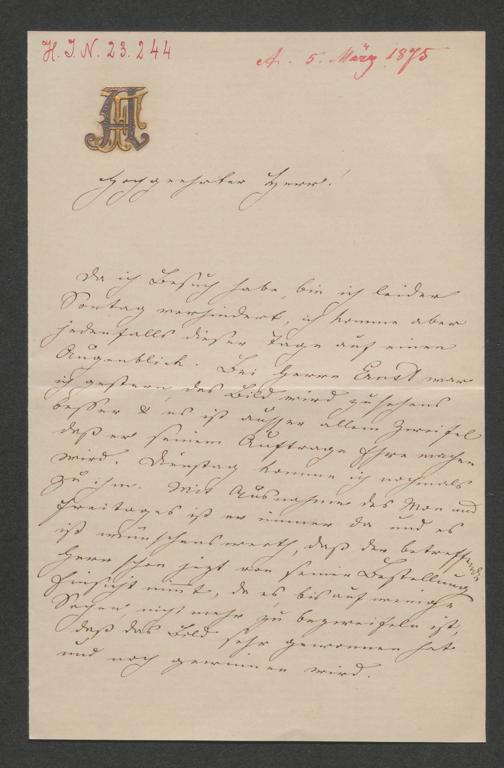 H. I. N. 23.244
A. 5. März 1875
A
Hochgeehrter Herr!
Da ich Besuch habe, bin ich leider
Sontag verhindert, ich komme aber
jedenfalls dieser Tage auf einen
Augenblick. Bei Herrn war
ich gestern, das Bild wird zusehens
besser & es ist ausser allem Zweifel
daß er seinem Auftrage Ehre machen
wird. Dienstag komme ich nochmals
zu ihm. Mit Ausnahme des Mon und
Freitages ist er immer da und es
ist wünschenswerth, daß der betreffende
Herr schon jezt von seiner Bestellung
Einsicht nimt, da es, bis auf wenige
Sachen nicht mehr zu bezweifeln ist,
daß das Bild sehr gewonnen hat
und noch gewinnen wird.